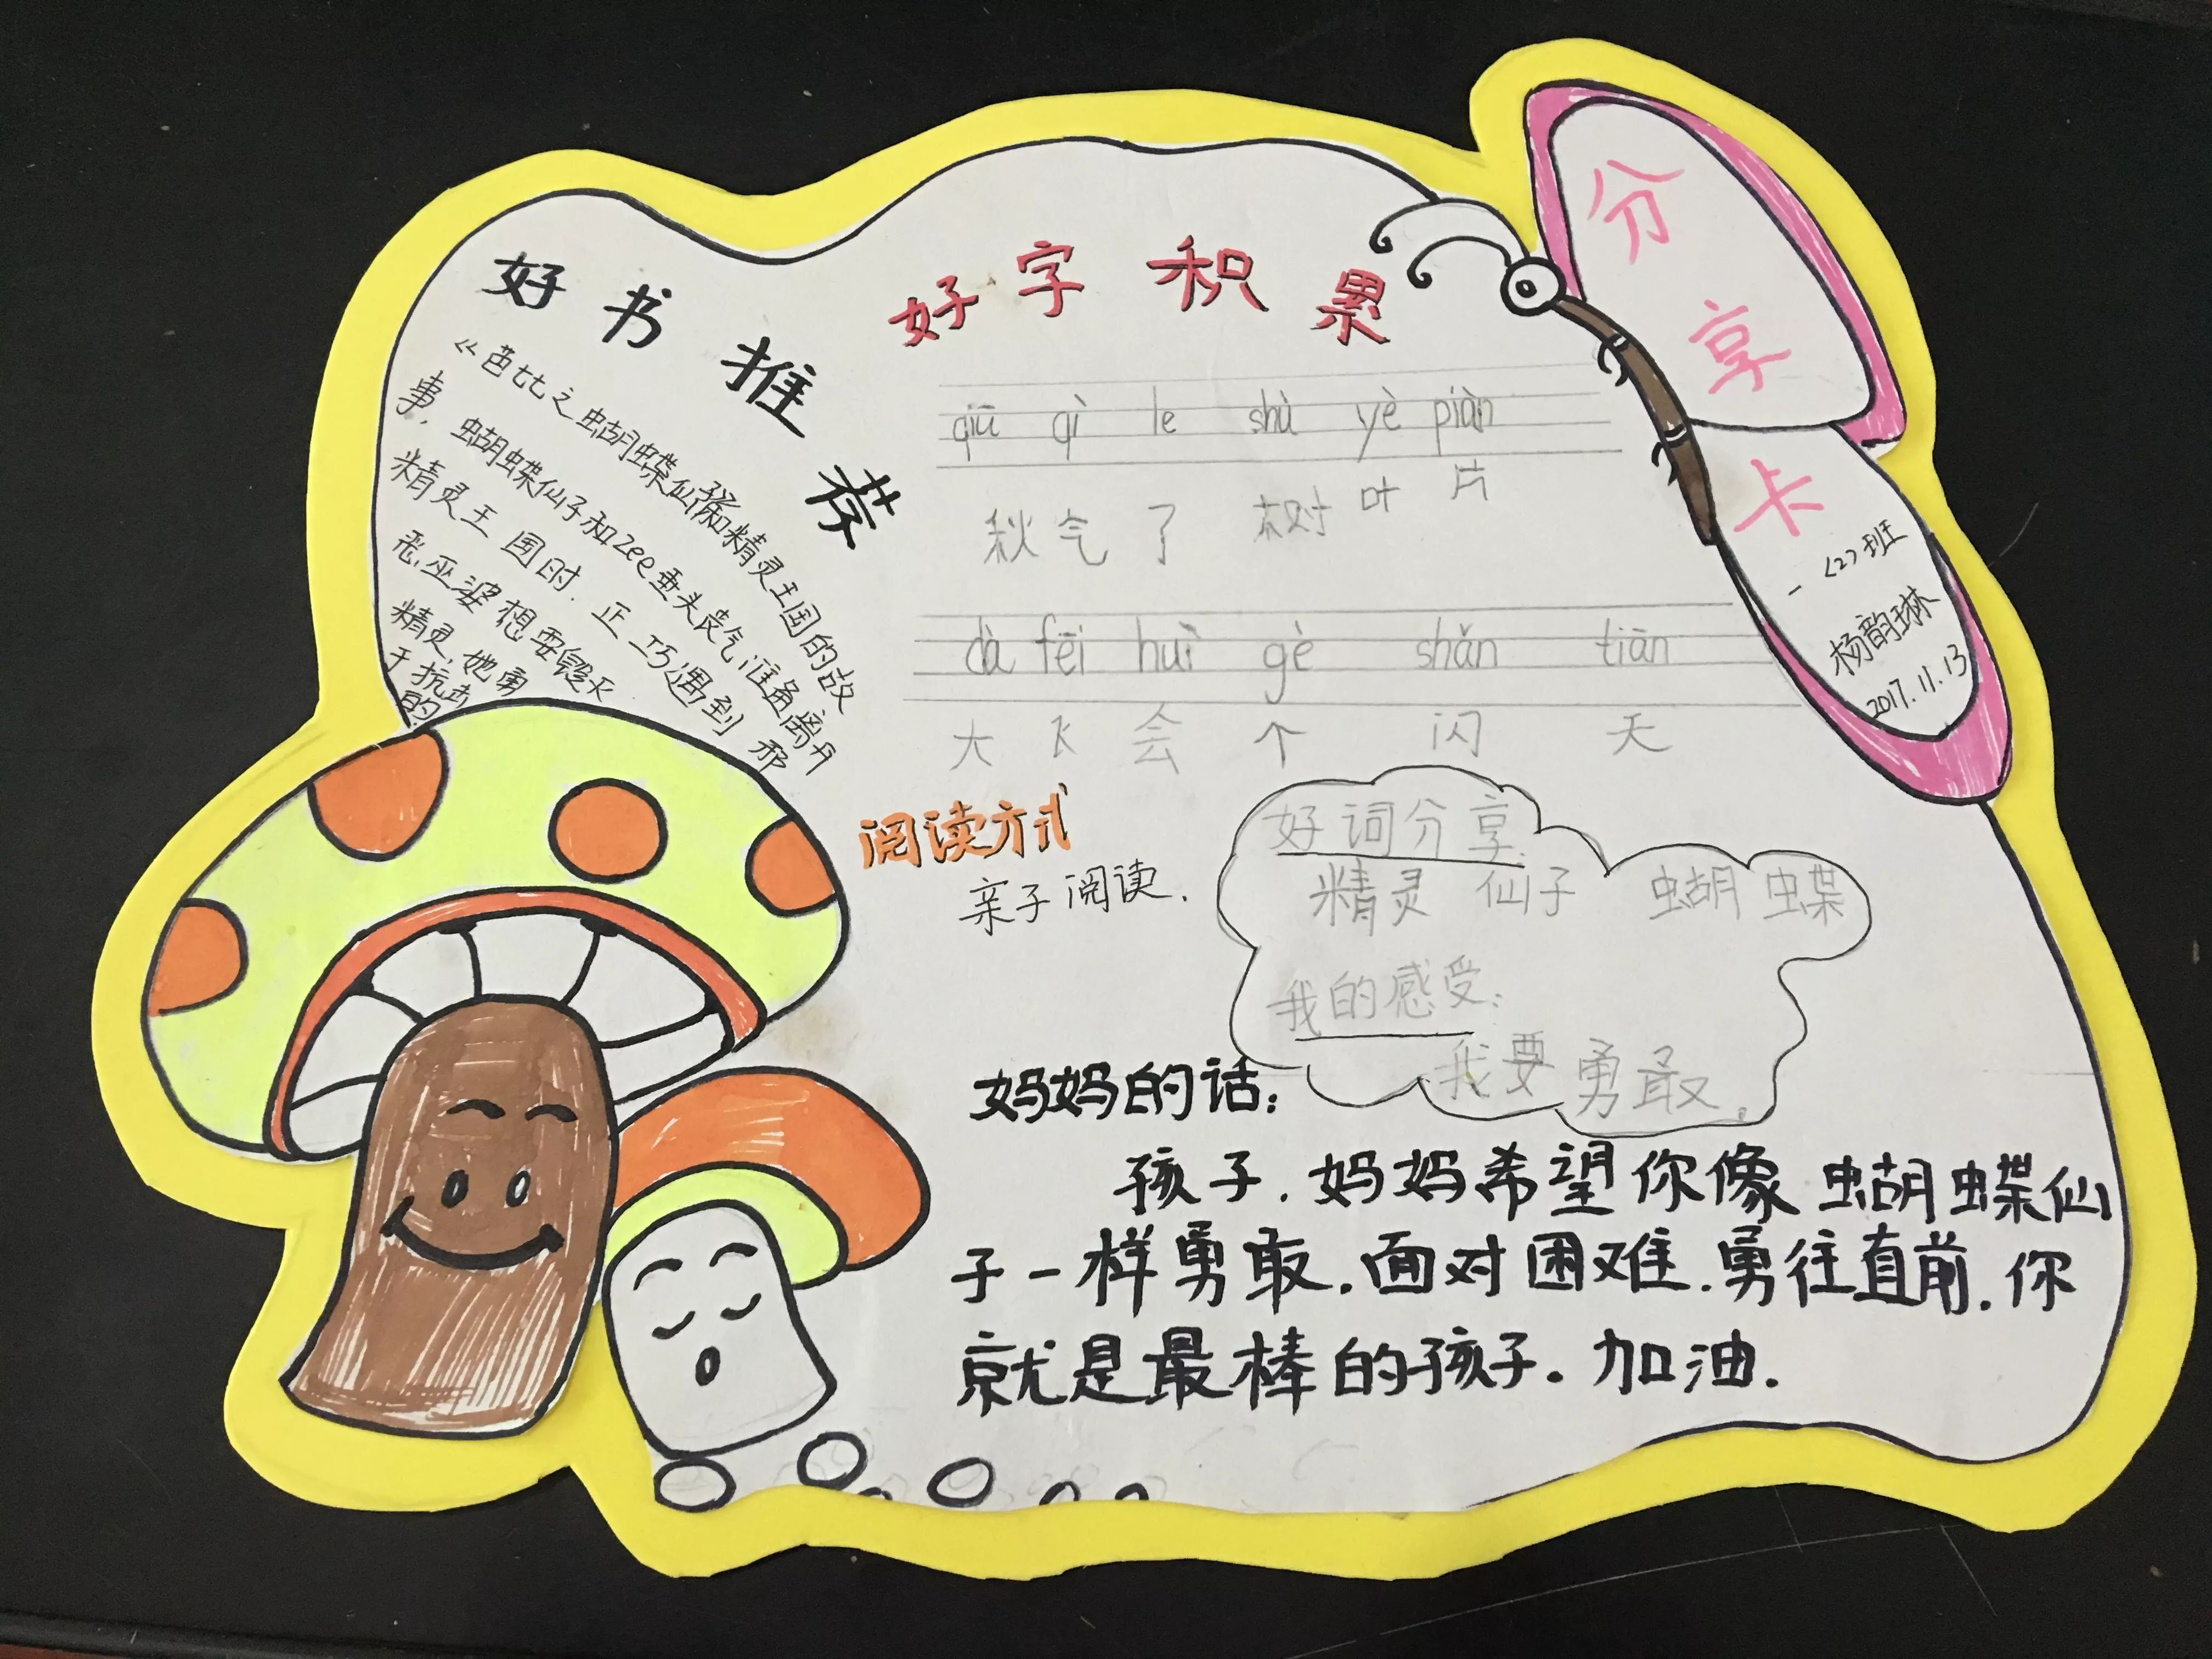 分享卡
一〈2〉班
杨韵琳
2017.11.13
好书推荐
《芭比之蝴蝶仙子和精灵王国的故
事，蝴蝶仙子和zee垂头丧气准备离开
精灵王国时，正巧遇到邪
恶巫婆想要毁灭
精灵，她勇
于抗击
的
好字积累
qiū qì le shù yè piàn
秋气了树叶片
dà fēi huì gè shǎn tiān
大飞会个闪天
阅读方式
亲子阅读.
好词分享:
精灵 仙子 蝴蝶
我的感受:
我要勇敢.
妈妈的话:
孩子.妈妈希望你像蝴蝶仙
子一样勇敢.面对困难.勇往直前.你
就是最棒的孩子。加油.